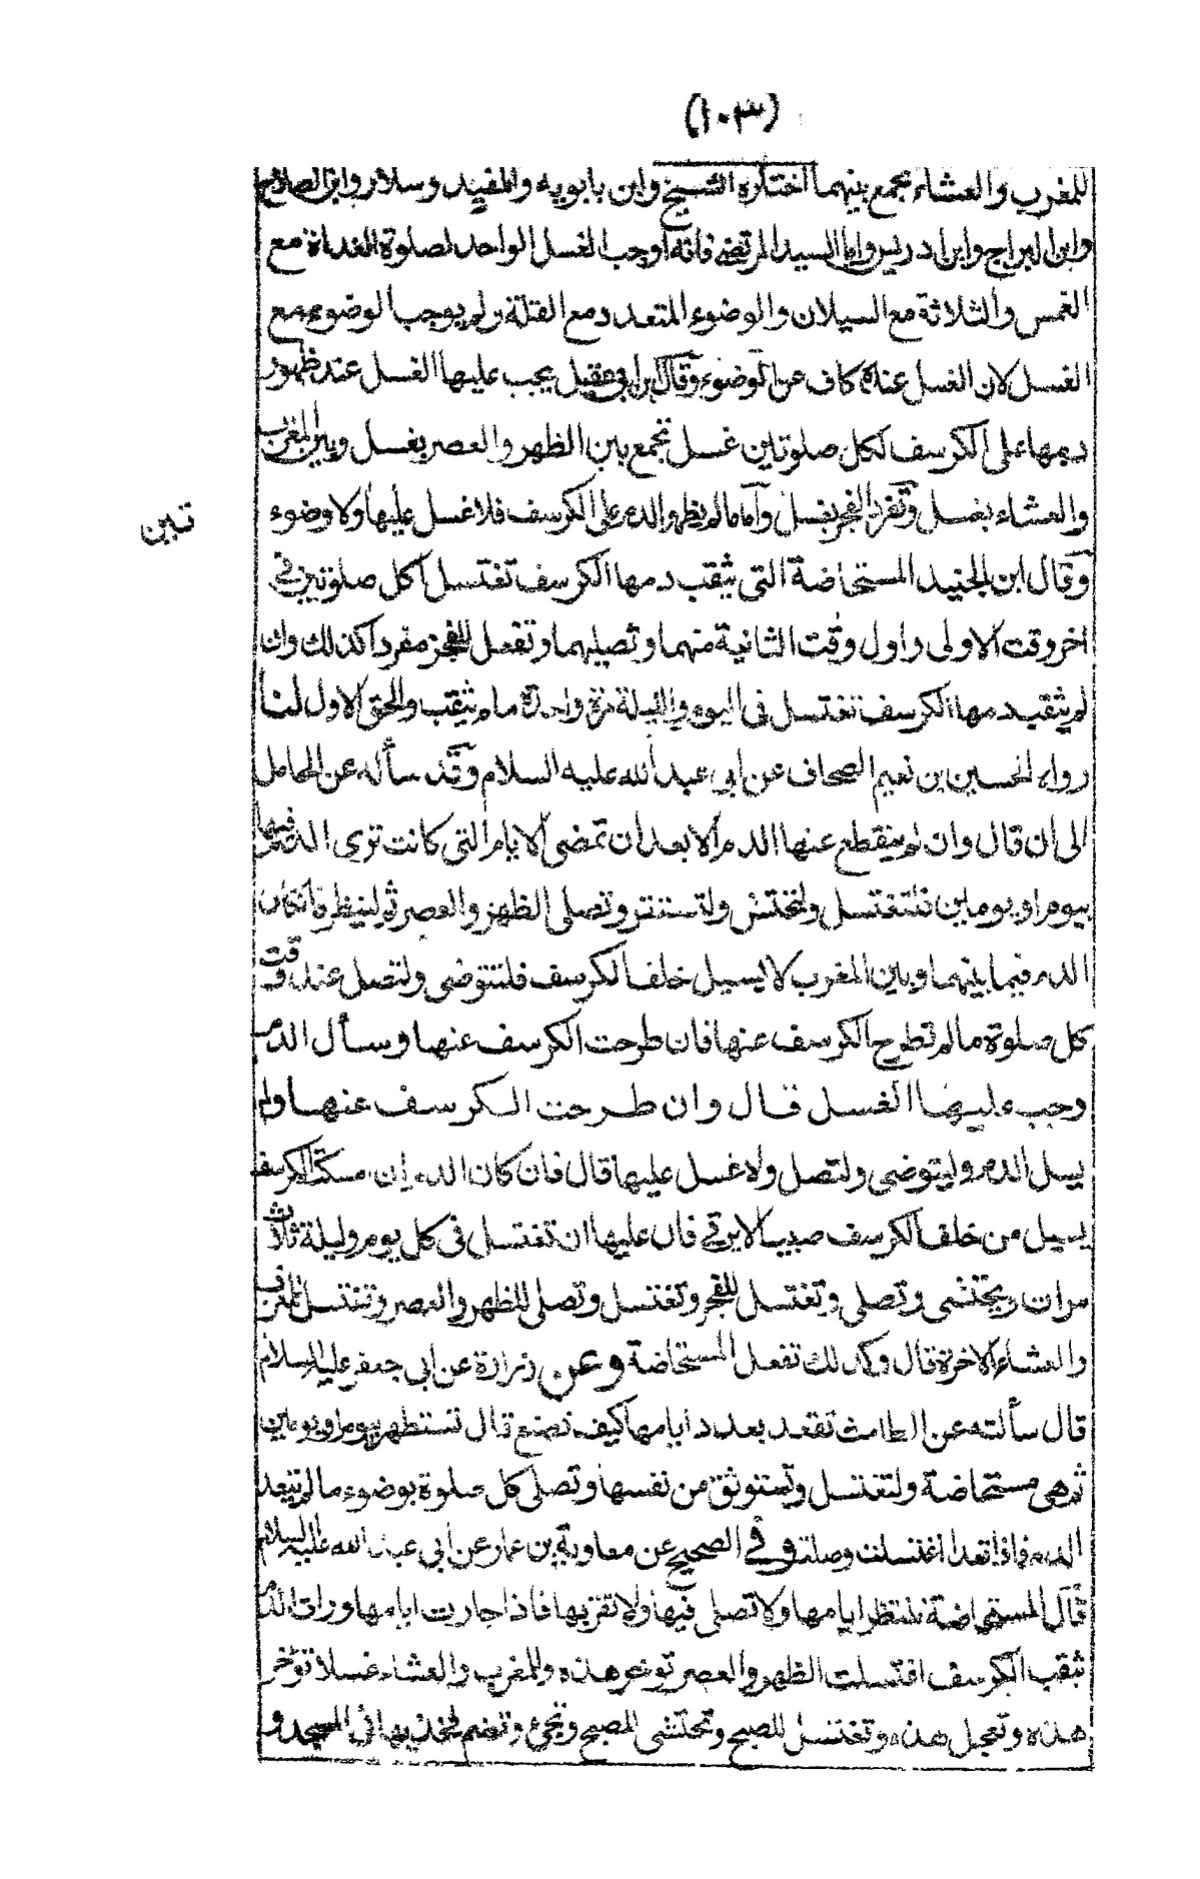 (١٠٣)
للمغرب والعشاء تجمع بينهما اختاره الشيخ وابن بابويه والمفيد وسلار وابو الصلاح
وابن البراج وابن ادريس واما السيد المرتضى فانه اوجب الغسل الواحد لصلوة الغداة مع
الغمس والثلاثة مع السيلان والوضوء المتعدد مع القلة ولم يوجب الوضوء مع
الغسل لان الغسل عنده كاف عن الوضوء وقال ابن ابي عقيل يجب عليها الغسل عند ظهور
دمها على الكرسف لكل صلوتين غسل تجمع بين الظهر والعصر بغسل وبين المغرب
والعشاء بغسل وتفرد الفجر بغسل وأما ما لم يظهر الدم على الكرسف فلا غسل عليها ولا وضوء
تبين
وقال ابن الجنيد المستحاضة التى يثقب دمها الكرسف تغتسل لكل صلوتين فى
اخر وقت الاولى واول وقت الثانية منهما وتصليهما وتفعل للفجر مفردا كذلك وان
لم يثقب دمها الكرسف تغتسل فى اليوم والليلة مرة واحدة ما لم يثقب والحق الاول لنا
رواه الحسين بن نعيم الصحاف عن ابى عبد الله عليه السلام وقد سأله عن الحامل
الى ان قال وان لم ينقطع عنها الدم الا بعد ان تمضى الايام التى كانت ترى الدم فيها
بيوم او يومين فلتغتسل ولتحتش ولتستثفر وتصلى الظهر والعصر ثم لينظر فان كان
الدم فيما بينهما وبين المغرب لا يسيل خلف الكرسف فلتتوضى ولتصل عند وقت
كل صلوة ما لم تطرح الكرسف عنها فان طرحت الكرسف عنها وسأل الدم
وجب عليها الغسل قال وان طرحت الكرسف عنها ولم
يسل الدم وليتوضى ولتصل ولا غسل عليها قال فان كان الدم اذا مسكت الكرسف
يسيل من خلف الكرسف صبيبا لا يرقى فان عليها ان تغتسل فى كل يوم وليلة ثلاث
مرات وتحتشى وتصلى وتغتسل للفجر وتغتسل وتصلى للظهر والعصر وتغتسل للمغرب
والعشاء الاخرة قال وكذلك تفعل المستحاضة وعن زرارة عن ابى جعفر عليه السلام
قال سألته عن الطامث تقعد بعدد ايامها كيف تصنع قال تستظهر بيوم او يومين
ثم هى مستحاضة ولتغتسل وتستوثق من نفسها وتصلى كل صلوة بوضوء ما لم ينفد
الدم فاذا نفد اغتسلت وصلت وفى الصحيح عن معاوية بن عمار عن ابى عبد الله عليه السلام
قال المستحاضة تنتظر ايامها ولا تصلى فيها ولا تقربها فاذا جازت ايامها ورات الدم
ثقب الكرسف اغتسلت الظهر والعصر توخر هذه والمغرب والعشاء غسلا تؤخر
هذه وتعجل هذه وتغتسل للصبح وتحتشى وتضم فخذيها فى المسجد و